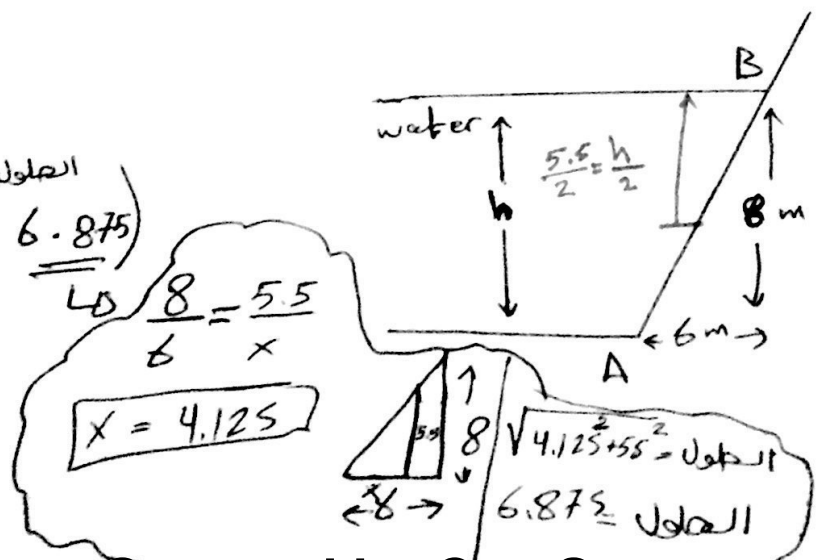 B
water
5.5/2 = h/2
h
8 m
الطول
6.875)
8/6 = 5.5/x
← 6 m →
A
x = 4.125
5.5
8
√4.125²+55² = الطول
6.875 = الطول